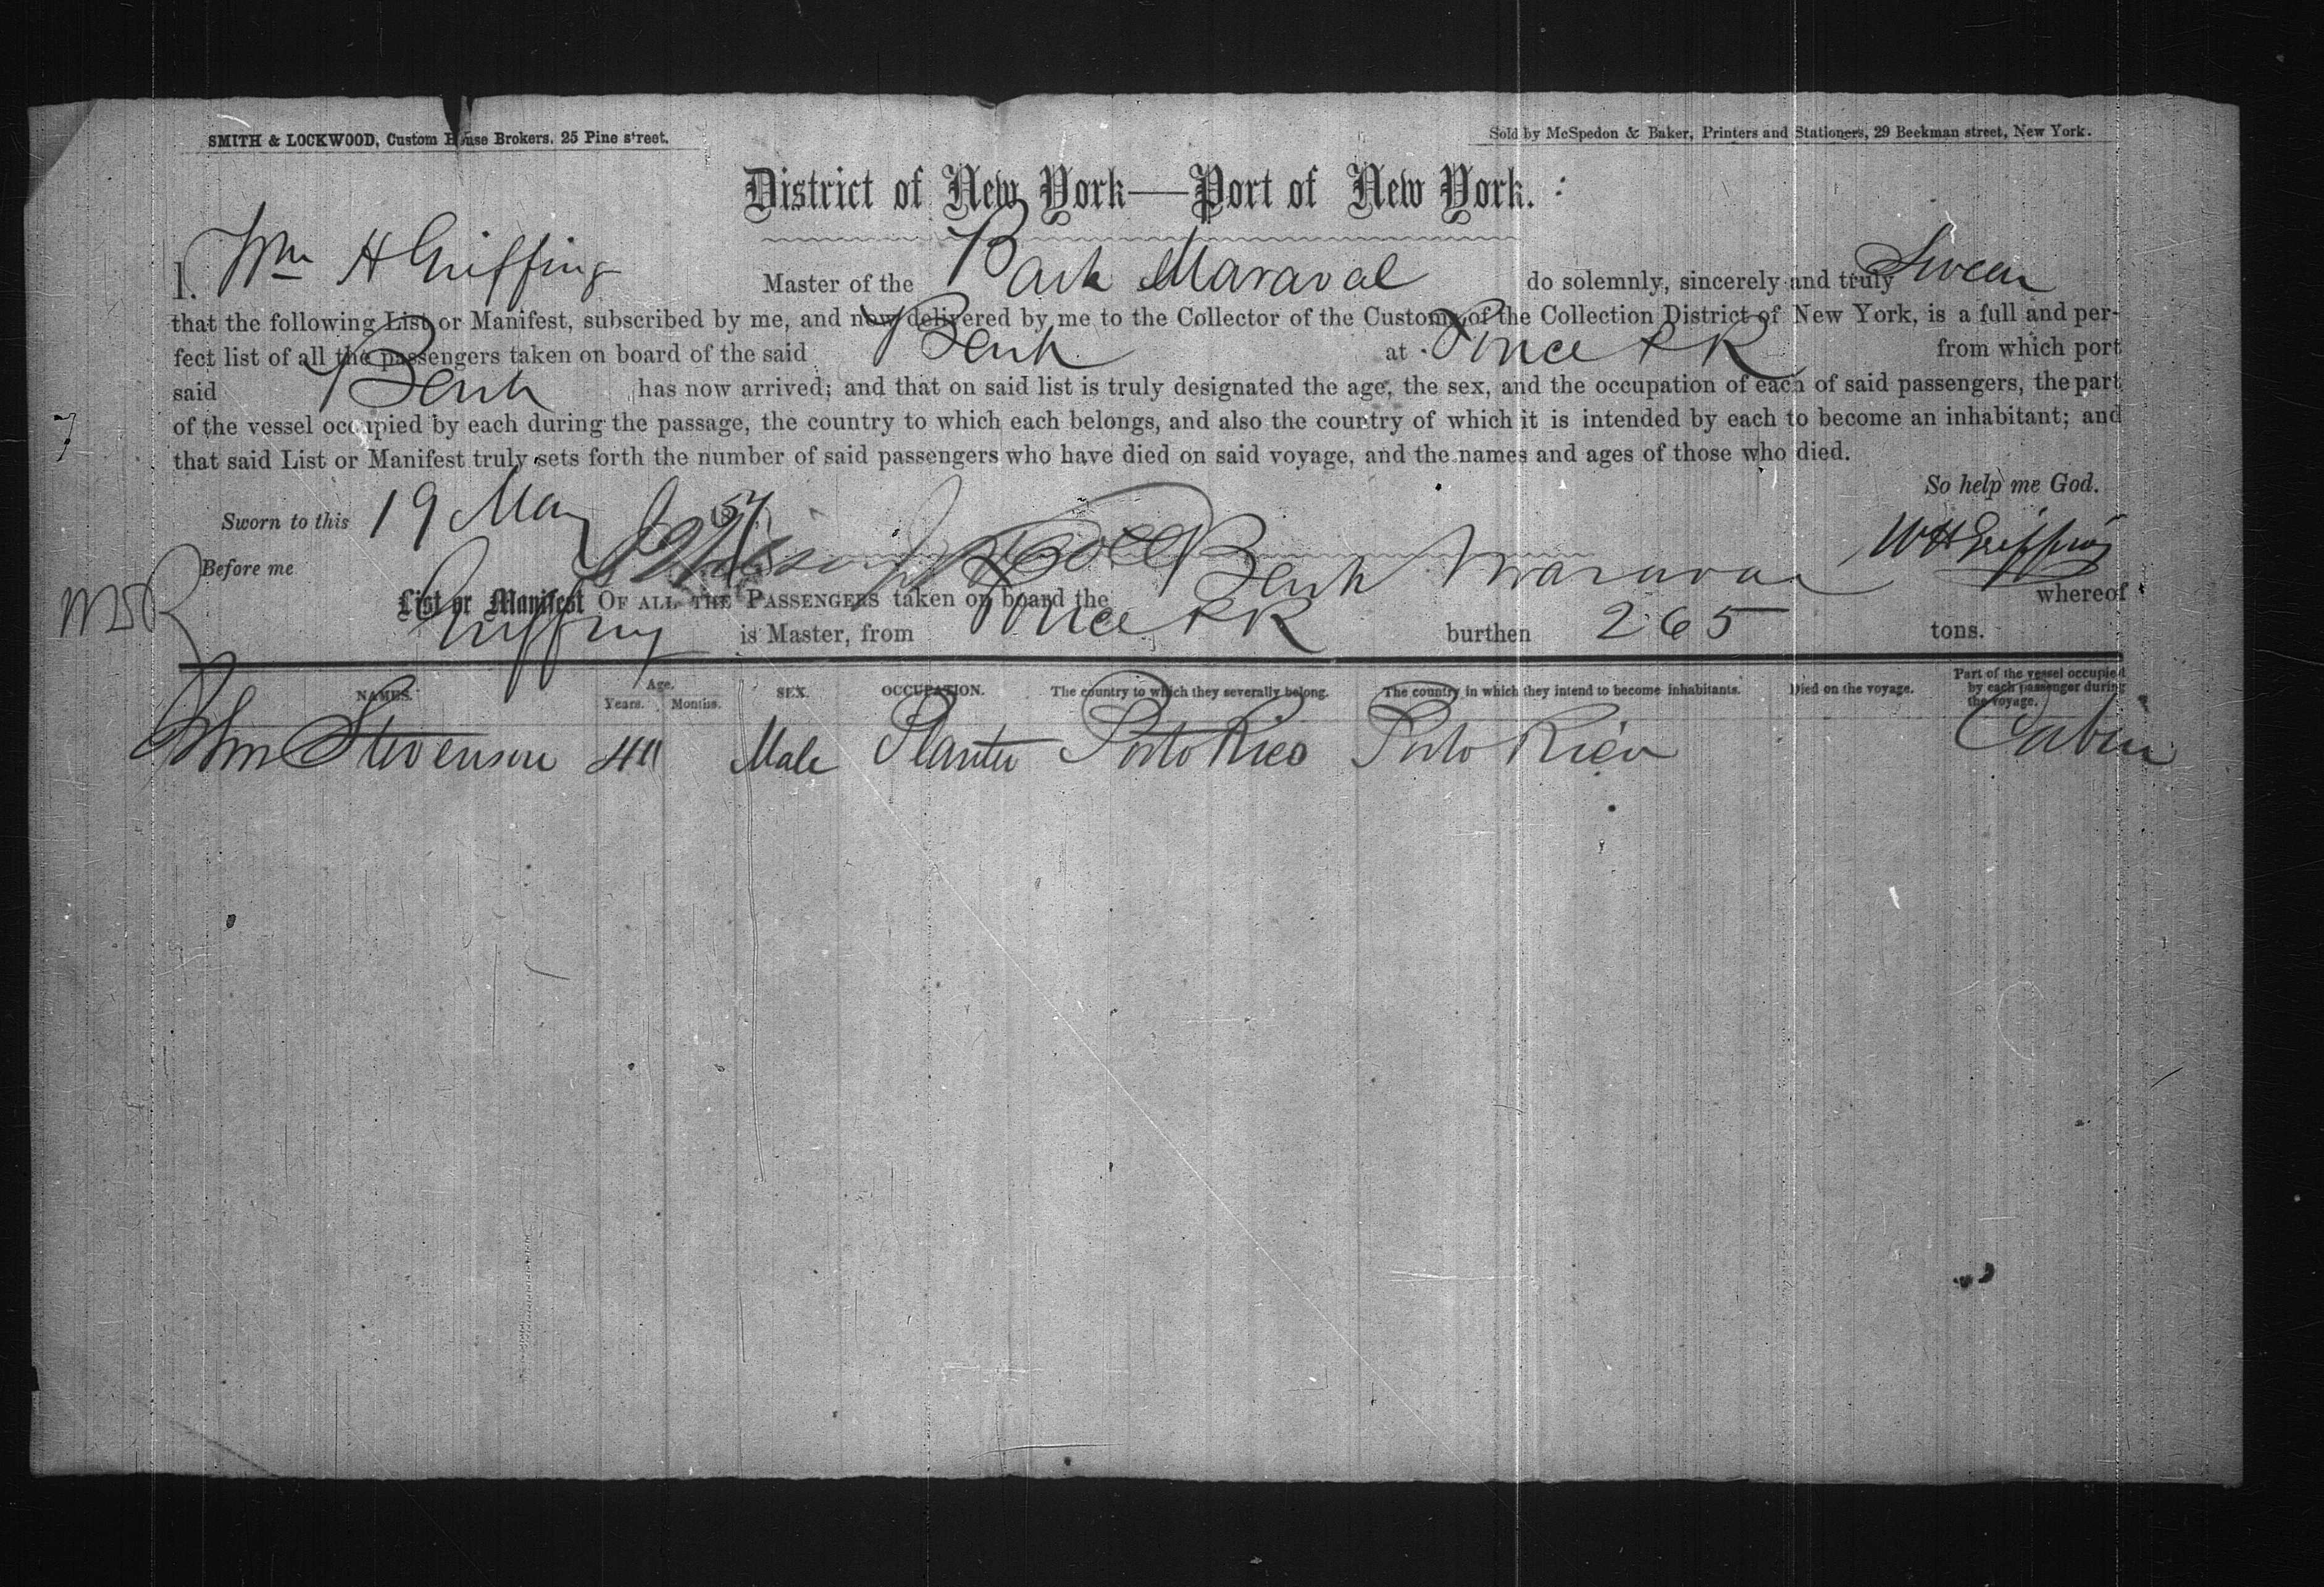 SMITH & LOCKWOOD, Custom House Brokers. 25 Pine street.
Sold by McSpedon & Baker, Printers and Stationers, 29 Beekman street, New York.
District of New York—Port of New York.
I. Wm H Griffing Master of the Bark Maraval do solemnly, sincerely and truly Swear
that the following List or Manifest, subscribed by me, and now delivered by me to the Collector of the Customs of the Collection District of New York, is a full and per-
fect list of all the passengers taken on board of the said Bark at Ponce P R from which port
said Bark has now arrived; and that on said list is truly designated the age, the sex, and the occupation of each of said passengers, the part
of the vessel occupied by each during the passage, the country to which each belongs, and also the country of which it is intended by each to become an inhabitant; and
that said List or Manifest truly sets forth the number of said passengers who have died on said voyage, and the names and ages of those who died.
So help me God.
Sworn to this 19 May 1857
Before me
W H Griffing
List or Manifest OF ALL THE PASSENGERS taken on board the Bark Maraval whereof
Griffing is Master, from Ponce P R burthen 265 tons.
NAMES. Age. Years. Months. SEX. OCCUPATION. The country to which they severally belong. The country in which they intend to become inhabitants. Died on the voyage. Part of the vessel occupied by each passenger during the voyage.
Wm Stevenson 44 Male Planter Porto Rico Porto Rico Cabin